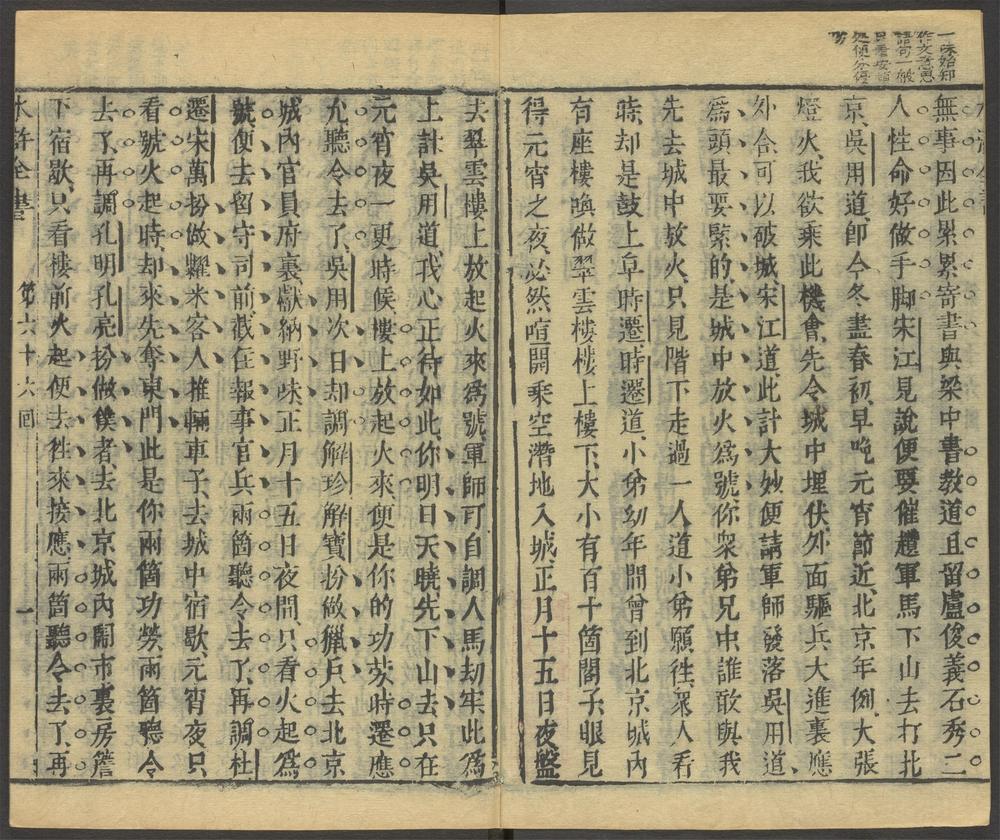 一味始知
作文意思
語句一般
只看安頓
處便分優
劣
無事因此累累寄書與梁中書教道且留盧俊義石秀二
人性命好做手脚宋江見說便要催趲軍馬下山去打北
京吳用道即今冬盡春初早晚元宵節近北京年例大張
燈火我欲乘此機會先令城中埋伏外面驅兵大進裏應
外合可以破城宋江道此計大妙便請軍師發落吳用道
爲頭最要緊的是城中放火爲號你衆弟兄中誰敢與我
先去城中放火只見階下走過一人道小弟願往衆人看
時却是鼓上皁時遷時遷道小弟幼年間曾到北京城內
有座樓喚做翠雲樓樓上樓下大小有百十箇閣子眼見
得元宵之夜必然喧閧乘空潛地入城正月十五日夜盤
去翠雲樓上放起火來爲號軍師可自調人馬劫牢此爲
上計吳用道我心正待如此你明日天曉先下山去只在
元宵夜一更時候樓上放起火來便是你的功勞時遷應
允聽令去了吳用次日却調解珍解寶扮做獵戶去北京
城內官員府裏獻納野味正月十五日夜間只看火起爲
號便去留守司前截住報事官兵兩箇聽令去了再調杜
遷宋萬扮做糶米客人推輛車子去城中宿歇元宵夜只
看號火起時却來先奪東門此是你兩箇功勞兩箇聽令
去了再調孔明孔亮扮做僕者去北京城內閙市裏房簷
下宿歇只看樓前火起便去往來接應兩箇聽令去了再
水滸全書
第六十六回
一